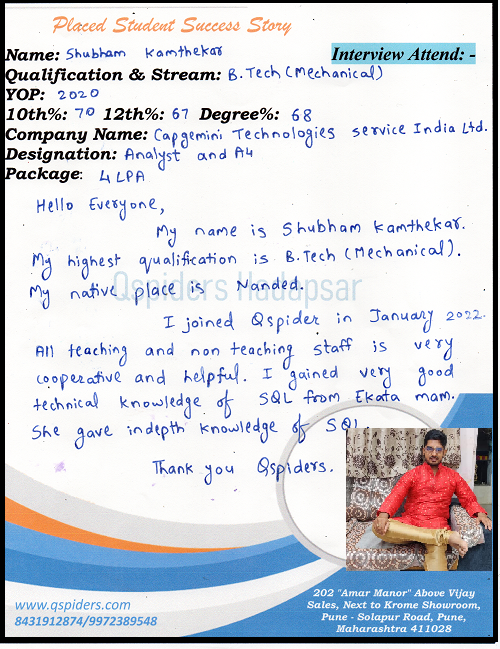 Placed Student Success Story
Name: Shubham Kamthekar
Interview Attend: -
Qualification & Stream: B.Tech (Mechanical)
YOP: 2020
10th%: 70 12th%: 67 Degree%: 68
Company Name: Capgemini Technologies service India Ltd.
Designation: Analyst and A4
Package: 4 LPA
Hello Everyone,
My name is Shubham Kamthekar.
My highest qualification is B.Tech (Mechanical).
Qspiders Hadapsar
My native place is Nanded.
I joined Qspider in January 2022.
All teaching and non teaching staff is very
cooperative and helpful. I gained very good
technical knowledge of SQL from Ekata mam.
She gave indepth knowledge of SQL
Thank you Qspiders.
www.qspiders.com
8431912874/9972389548
202 "Amar Manor" Above Vijay
Sales, Next to Krome Showroom,
Pune - Solapur Road, Pune,
Maharashtra 411028